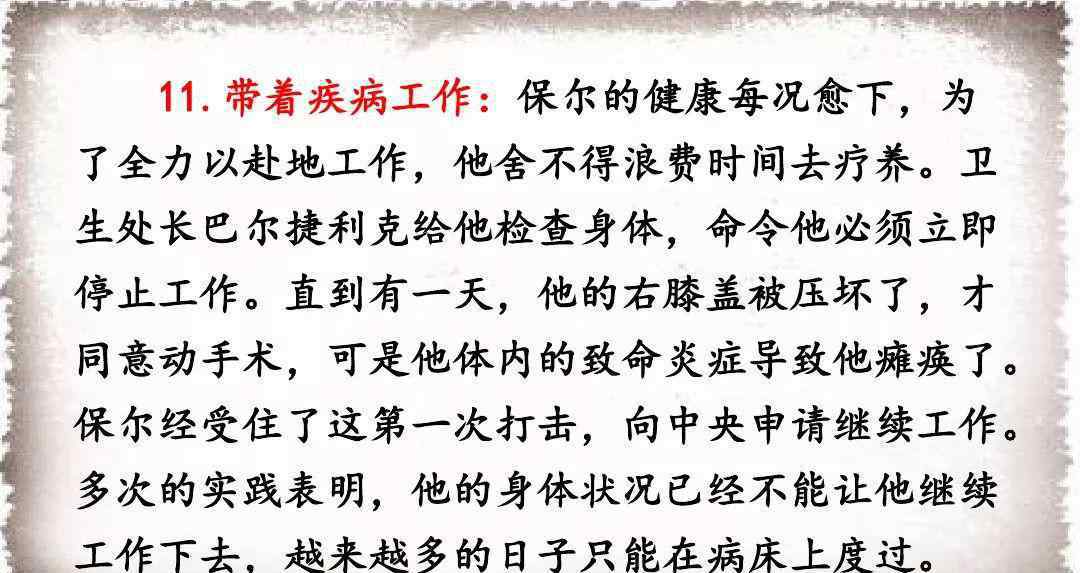 11.带着疾病工作：保尔的健康每况愈下，为
了全力以赴地工作，他舍不得浪费时间去疗养。卫
生处长巴尔捷利克给他检查身体，命令他必须立即
停止工作。直到有一天，他的右膝盖被压坏了，才
同意动手术，可是他体内的致命炎症导致他瘫痪了。
保尔经受住了这第一次打击，向中央申请继续工作。
多次的实践表明，他的身体状况已经不能让他继续
工作下去，越来越多的日子只能在病床上度过。